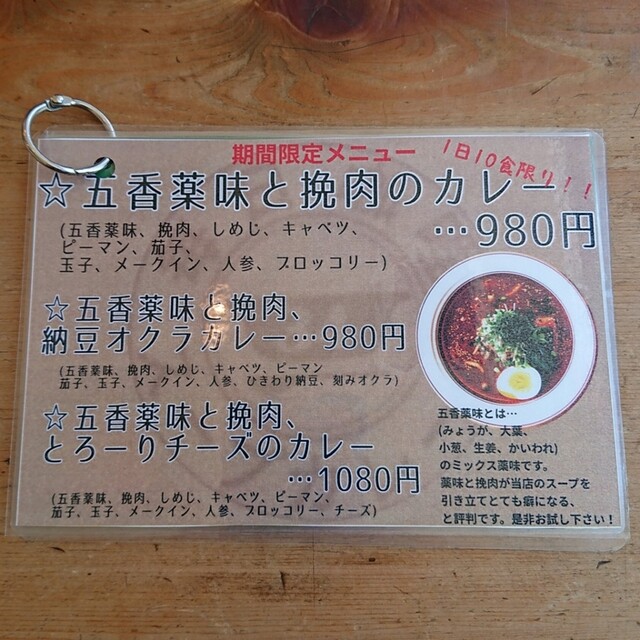 期間限定メニュー
1日10食限り!!
☆五香薬味と挽肉のカレー
…980円
(五香薬味、挽肉、しめじ、キャベツ、
ピーマン、茄子、
玉子、メークイン、人参、ブロッコリー)
☆五香薬味と挽肉、
納豆オクラカレー…980円
(五香薬味、挽肉、しめじ、キャベツ、ピーマン
茄子、玉子、メークイン、人参、ひきわり納豆、刻みオクラ)
☆五香薬味と挽肉、
とろーりチーズのカレー
…1080円
(五香薬味、挽肉、しめじ、キャベツ、ピーマン、
茄子、玉子、メークイン、人参、ブロッコリー、チーズ)
五香薬味とは…
(みょうが、大葉、
小葱、生姜、かいわれ)
のミックス薬味です。
薬味と挽肉が当店のスープを
引き立てとても癖になる、
と評判です。是非お試し下さい!